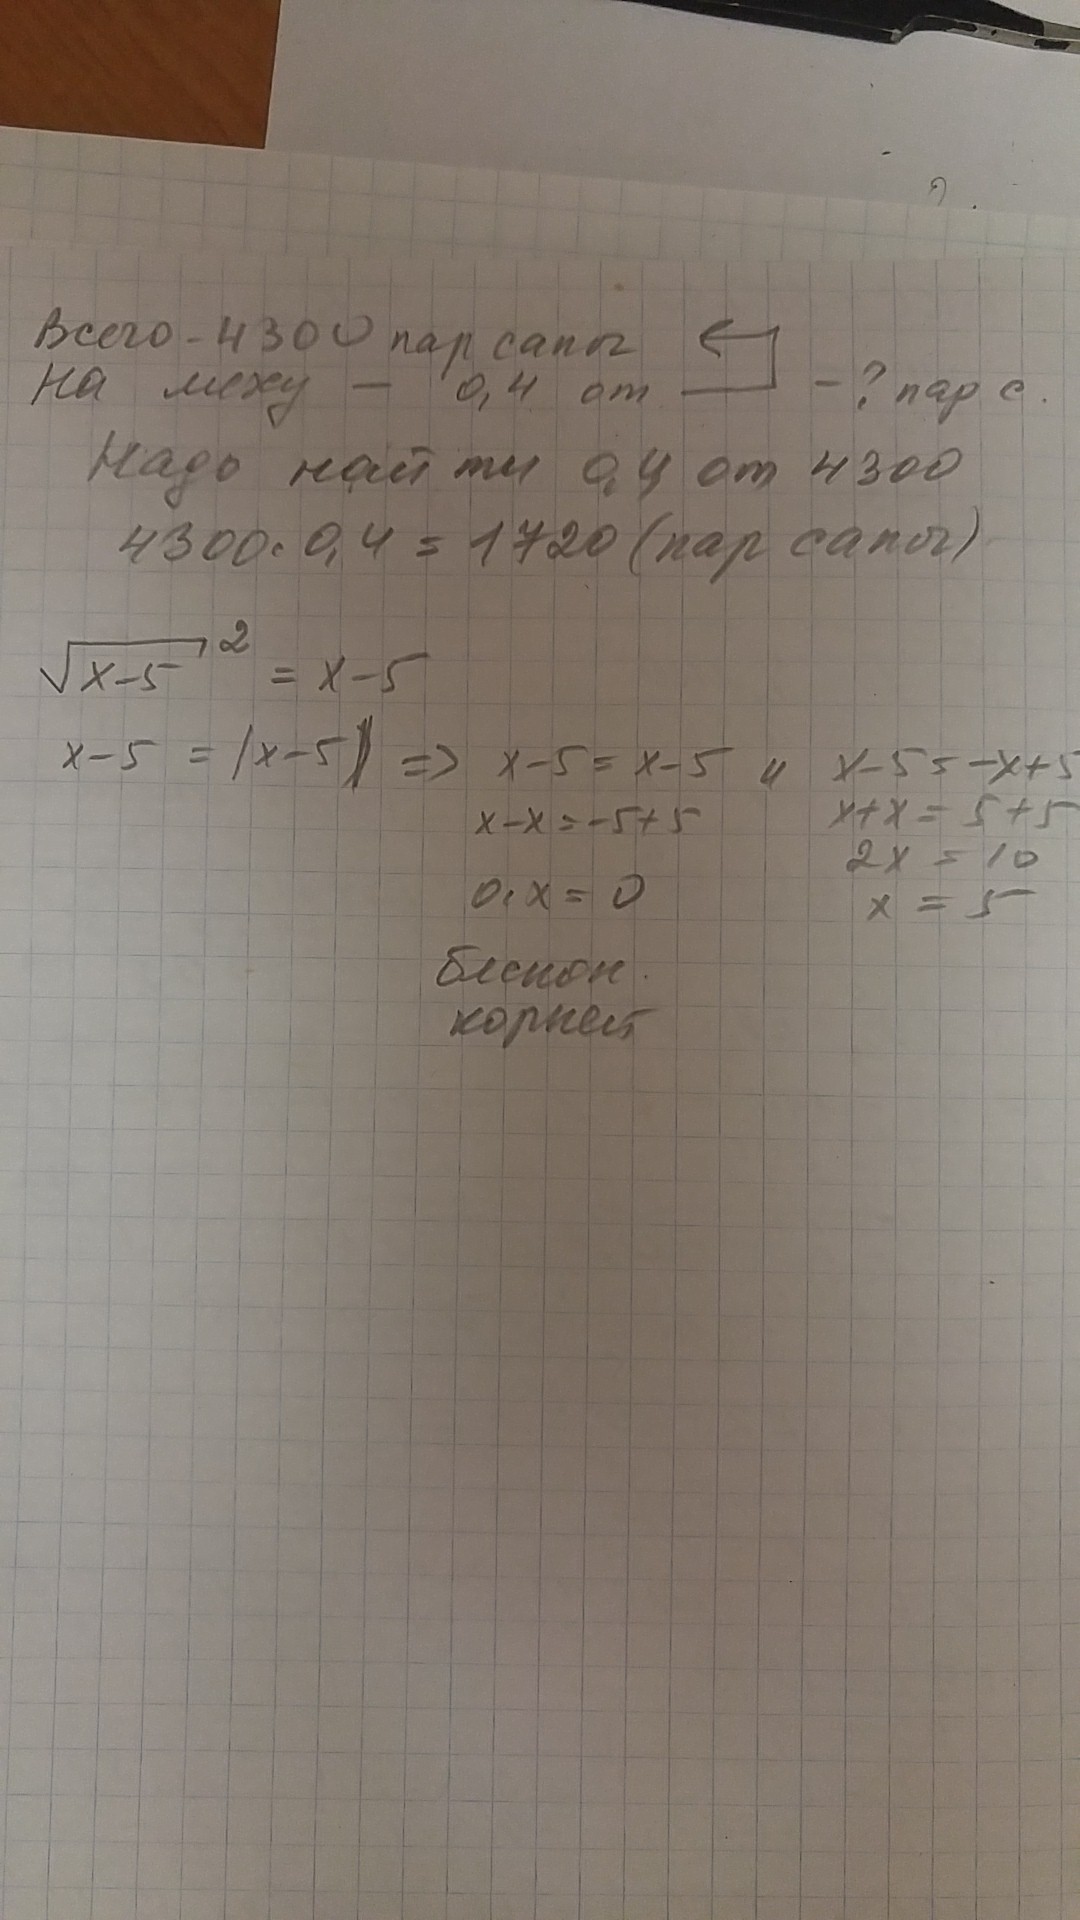 Всего - 4300 пар сапог
На меху - 0,4 от - ? пар с.
Надо найти 0,4 от 4300
4300 · 0,4 = 1720 (пар сапог)
√x-5 ² = x-5
x-5 = |x-5| => x-5 = x-5 и x-5 = -x+5
x-x = -5+5 x+x = 5+5
2x = 10
0·x = 0 x = 5
бескон.
корней